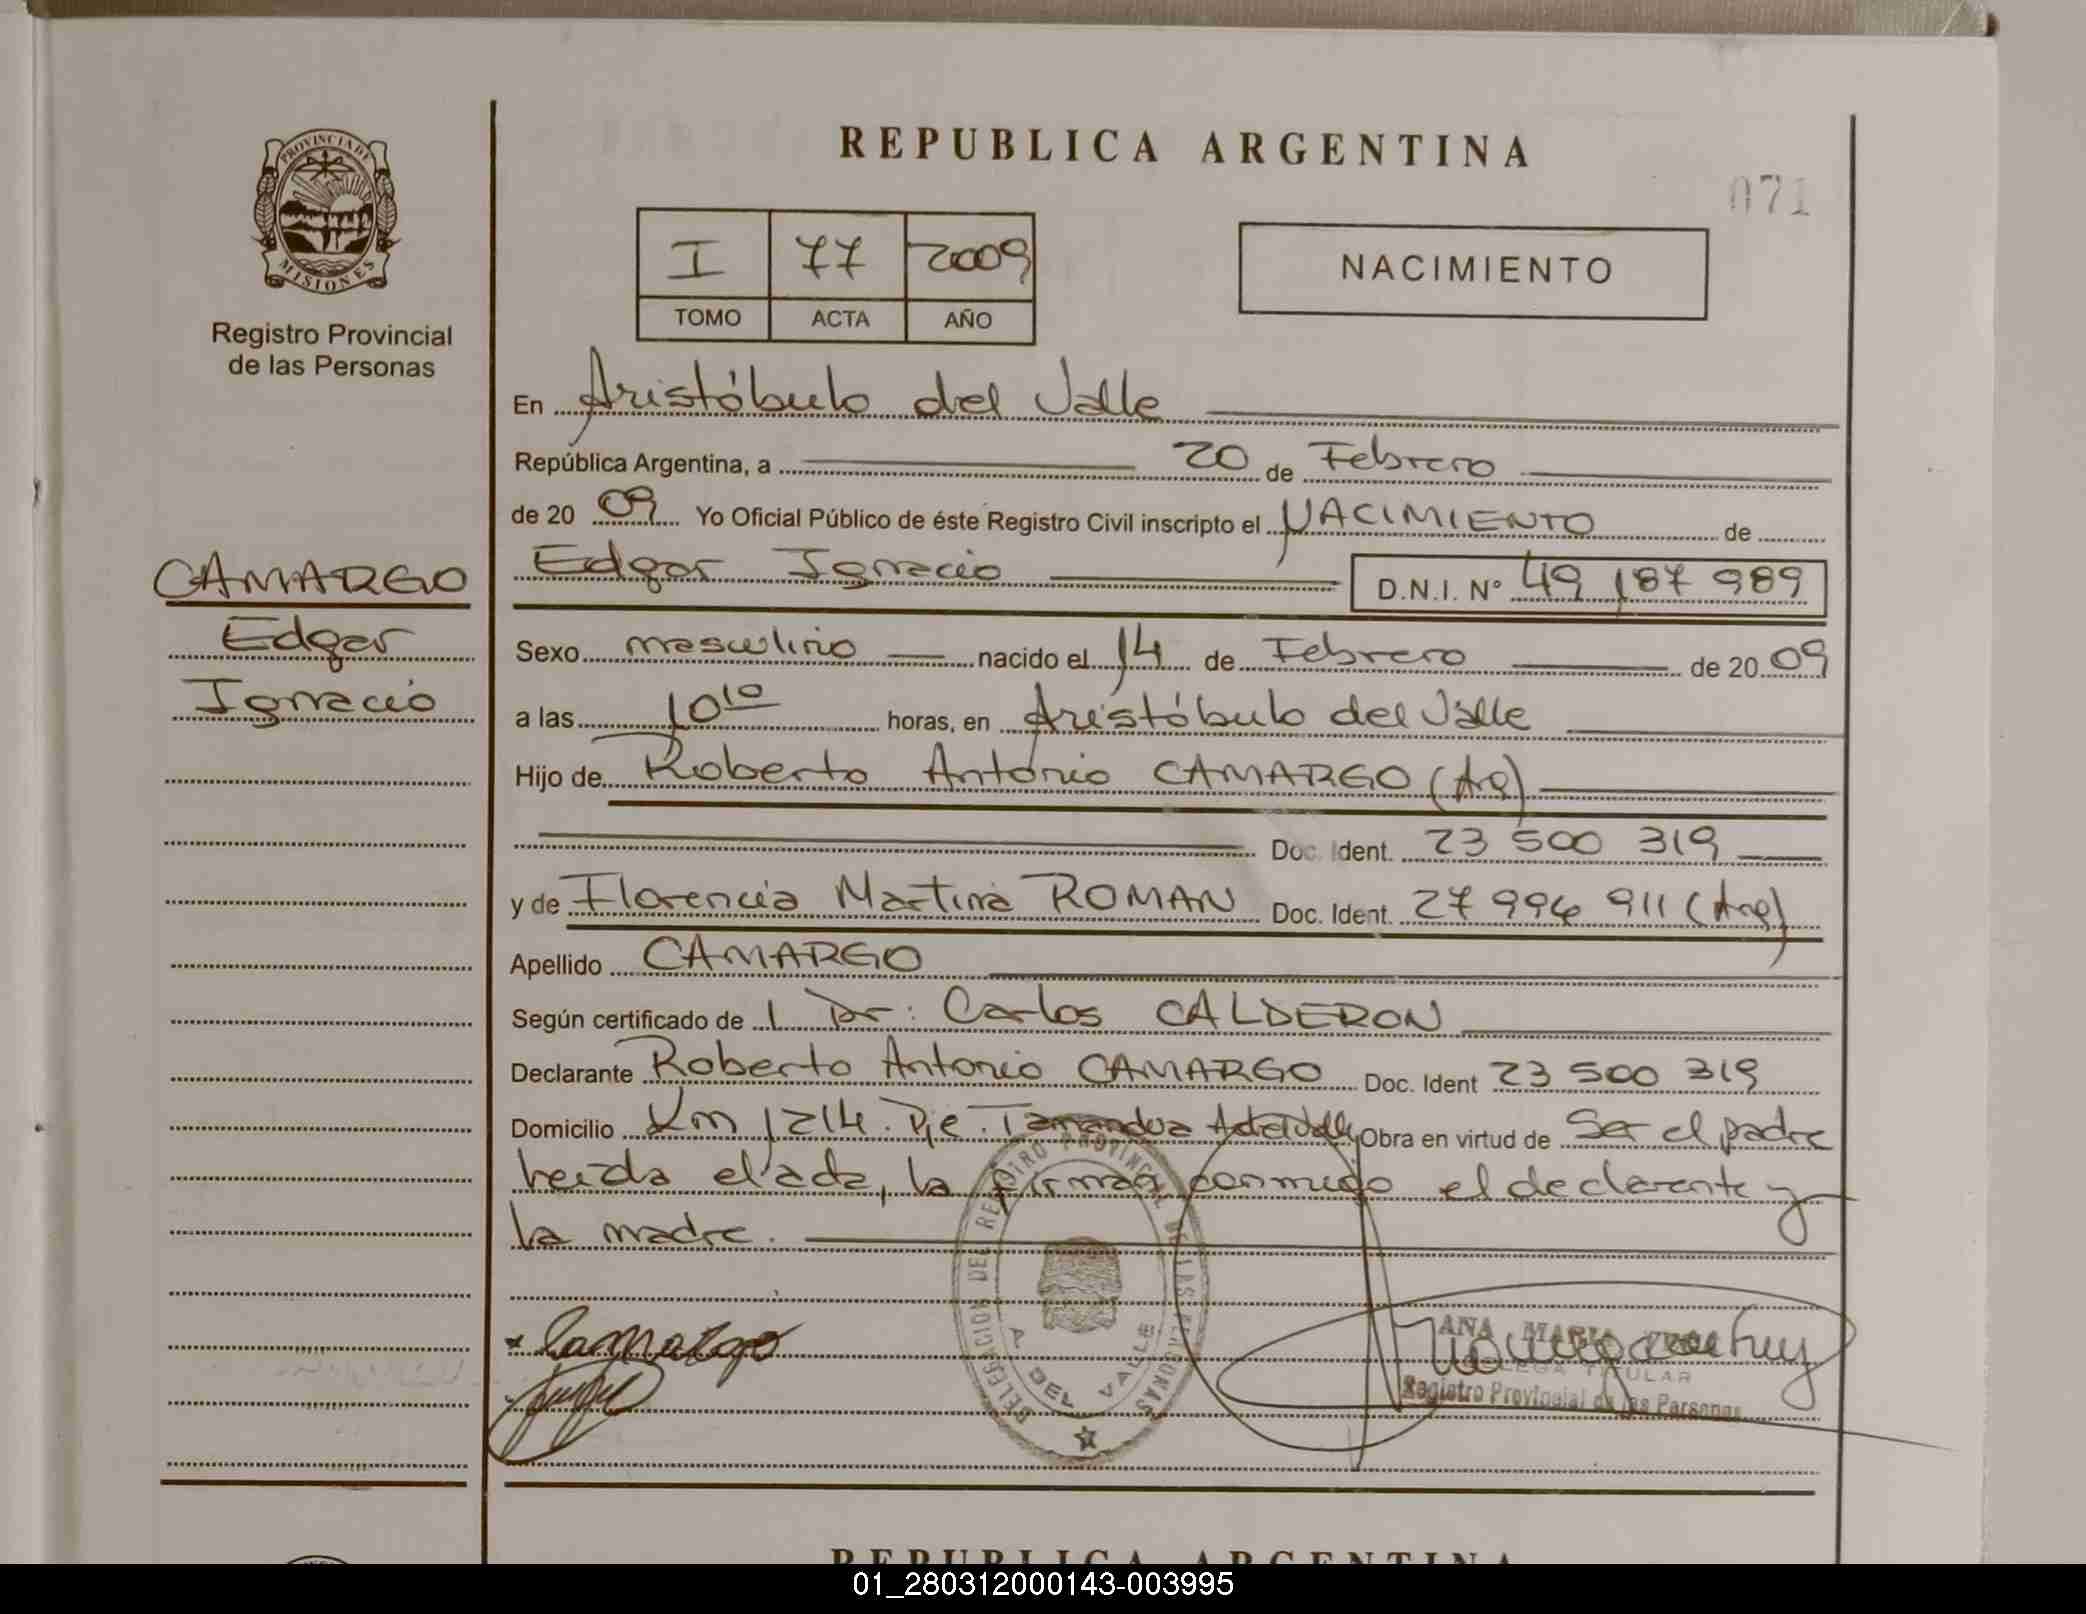 REPUBLICA ARGENTINA
071
PROVINCIA DE
MISIONES
Registro Provincial
de las Personas
I 77 2009
TOMO ACTA AÑO
NACIMIENTO
En Aristóbulo del Valle
República Argentina, a 20 de Febrero
de 20 09 Yo Oficial Público de éste Registro Civil inscripto el NACIMIENTO de
CAMARGO
Edgar
Ignacio
Edgar Ignacio D.N.I. Nº 49 187 989
Sexo masculino nacido el 14 de Febrero de 20 09
a las 10 10 horas, en Aristóbulo del Valle
Hijo de Roberto Antonio CAMARGO (Arg)
Doc. Ident. 23 500 319
y de Florencia Martina ROMAN Doc. Ident. 27 994 911 (Arg)
Apellido CAMARGO
Según certificado de 1 Dr: Carlos CALDERON
Declarante Roberto Antonio CAMARGO Doc. Ident 23 500 319
Domicilio Km 1214. Pje. Tamandua A del Valle Obra en virtud de Ser el padre
leida el acta, la firman conmigo el declarante y
la madre.
DELEGACION DEL REGISTRO PROVINCIAL DE LAS PERSONAS
A DEL VALLE
Camargo
ANA MARIA
DELEGADA TITULAR
Registro Provincial de las Personas
REPUBLICA ARGENTINA
01_280312000143-003995